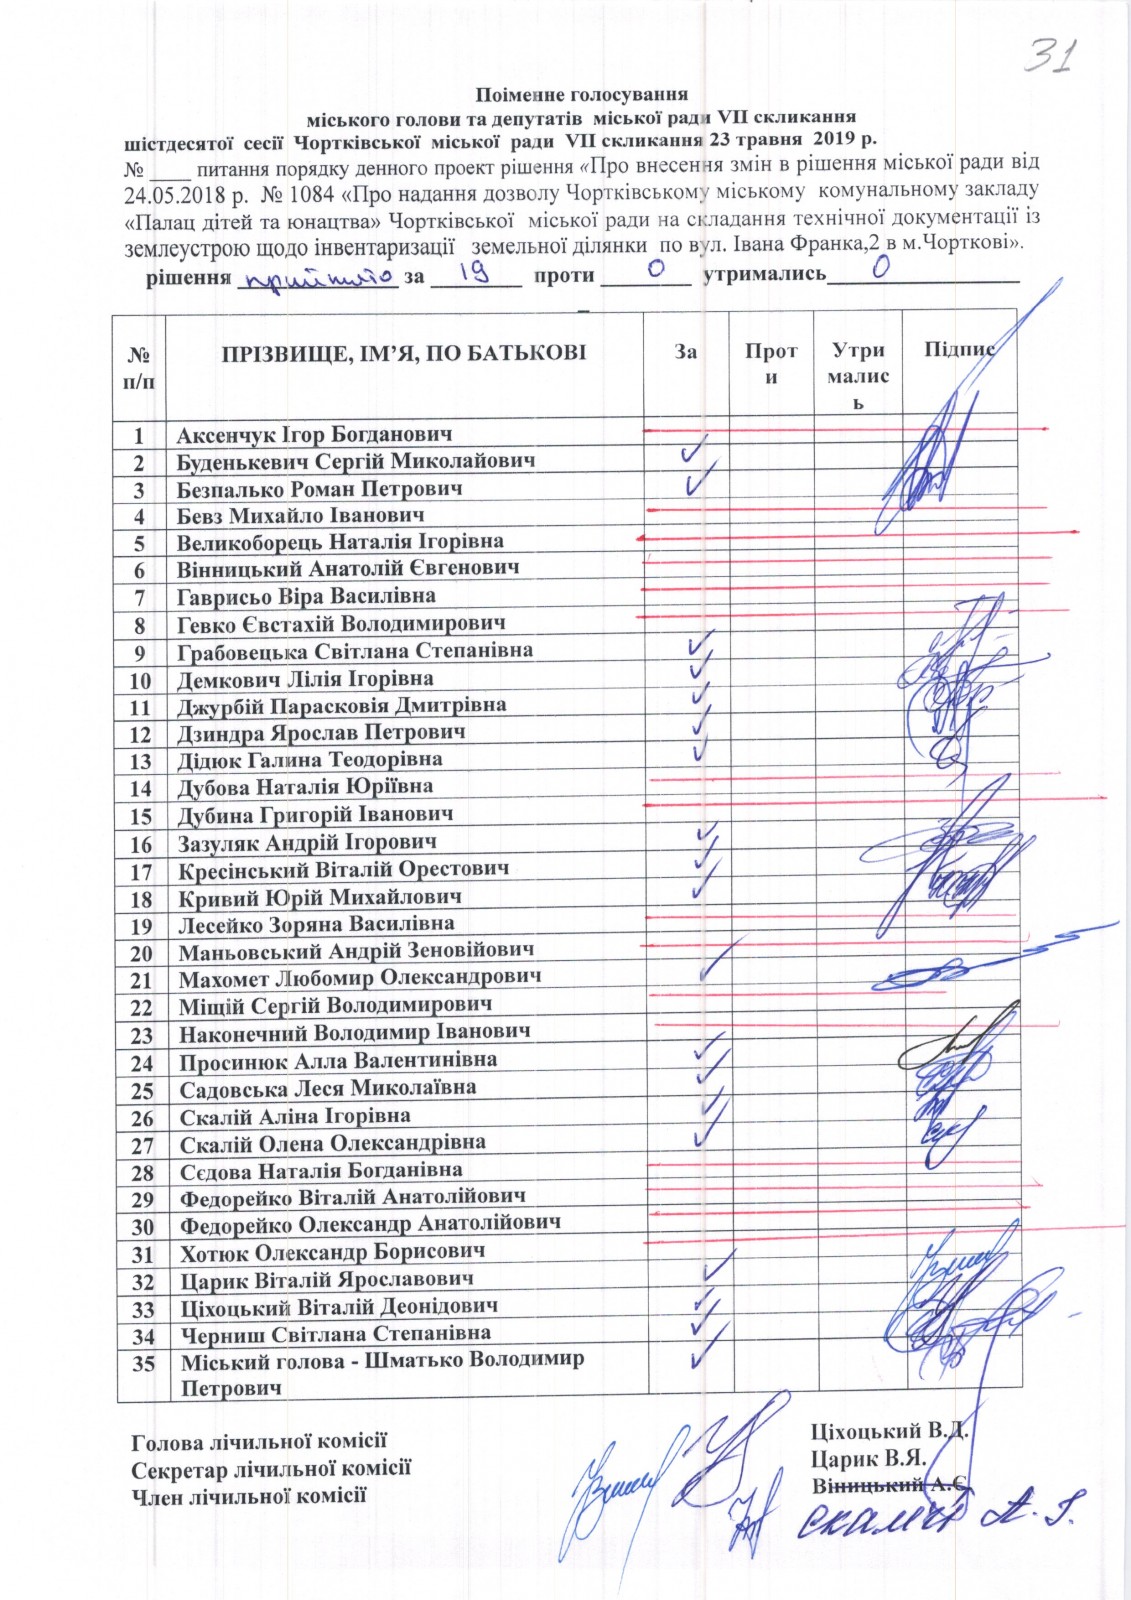 31
Поіменне голосування
міського голови та депутатів міської ради VII скликання
шістдесятої сесії Чортківської міської ради VII скликання 23 травня 2019 р.
№ ____ питання порядку денного проект рішення «Про внесення змін в рішення міської ради від
24.05.2018 р. № 1084 «Про надання дозволу Чортківському міському комунальному закладу
«Палац дітей та юнацтва» Чортківської міської ради на складання технічної документації із
землеустрою щодо інвентаризації земельної ділянки по вул. Івана Франка,2 в м.Чорткові».
рішення прийнято за 19 проти 0 утримались 0
№ п/п ПРІЗВИЩЕ, ІМ’Я, ПО БАТЬКОВІ За Проти Утримались Підпис
1 Аксенчук Ігор Богданович
2 Буденькевич Сергій Миколайович ✓
3 Безпалько Роман Петрович ✓
4 Бевз Михайло Іванович
5 Великоборець Наталія Ігорівна
6 Вінницький Анатолій Євгенович
7 Гаврисьо Віра Василівна
8 Гевко Євстахій Володимирович
9 Грабовецька Світлана Степанівна ✓
10 Демкович Лілія Ігорівна ✓
11 Джурбій Парасковія Дмитрівна ✓
12 Дзиндра Ярослав Петрович ✓
13 Дідюк Галина Теодорівна ✓
14 Дубова Наталія Юріївна
15 Дубина Григорій Іванович
16 Зазуляк Андрій Ігорович ✓
17 Кресінський Віталій Орестович ✓
18 Кривий Юрій Михайлович ✓
19 Лесейко Зоряна Василівна
20 Маньовський Андрій Зеновійович
21 Махомет Любомир Олександрович ✓
22 Міщій Сергій Володимирович
23 Наконечний Володимир Іванович
24 Просинюк Алла Валентинівна ✓
25 Садовська Леся Миколаївна ✓
26 Скалій Аліна Ігорівна ✓
27 Скалій Олена Олександрівна ✓
28 Сєдова Наталія Богданівна
29 Федорейко Віталій Анатолійович
30 Федорейко Олександр Анатолійович
31 Хотюк Олександр Борисович
32 Царик Віталій Ярославович ✓
33 Ціхоцький Віталій Деонідович ✓
34 Черниш Світлана Степанівна ✓
35 Міський голова - Шматько Володимир
Петрович ✓
Голова лічильної комісії Ціхоцький В.Д.
Секретар лічильної комісії Царик В.Я.
Член лічильної комісії Віницький А.Є.
Скалій А. І.